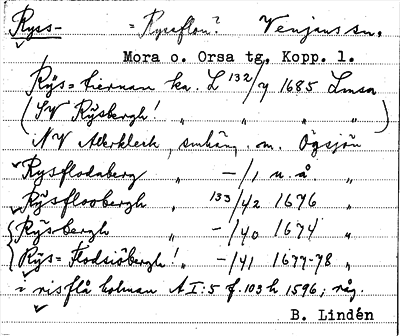 Ryss-  = Rysaflon?  Venjans sn.
Mora o. Orsa tg, Kopp. l.
Rÿs=tiernan ka. L 132/7 1685 Lmsa
(SV Rÿsbergh! " " ")
NV Åkerklack, smhäng. m. Ögsjön
Rysflodaberg " -/1 u.å "
Rÿsfloobergh " 133/42 1676 "
Rÿsbergh " -/40 1674 "
Rÿs=Flodsiöbergh! " -/41 1677-78 "
i risflå holman A I:5 f. 103 h 1596; råg.
B. Lindén